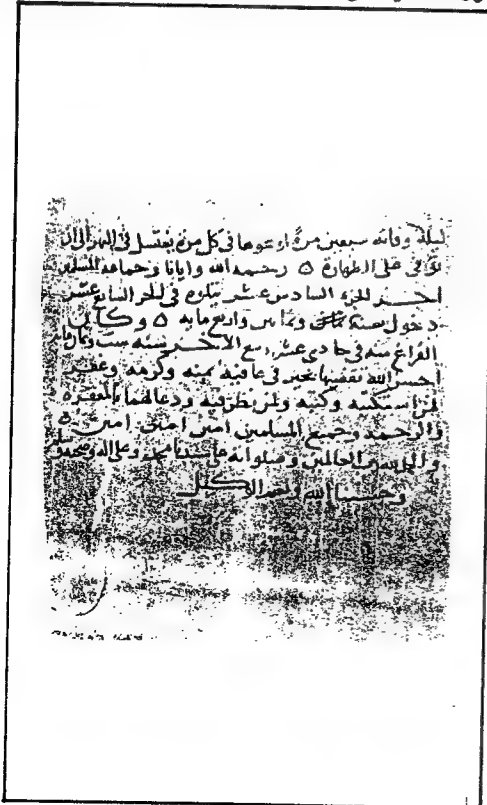 ليلة وفاته سبعين مرة ارعوها في كل مرة يغتسل في النهر الى ان
توفي على الطهارة ه رحمه الله وايانا وجماعة المسلمين
اخر الجزء السادس عشر يتلوه في الجزء السابع عشر
دخول سنة وثمانين واربع مايه ه وكان
الفراغ منه في حادي عشر ربيع الاخر سنه ست وثمان مايه
احسن الله تقضيها بخير في عافية بمنه وكرمه وغفر
لمن استكتبه وكتبه ولمن نظر فيه ودعا لهما بالمغفرة
والرحمه ولجميع المسلمين امين امين امين ه
والحمد لله رب العالمين وصلواته على سيدنا محمد وعلى اله وصحبه وسلم
وحسبنا الله ونعم الوكيل